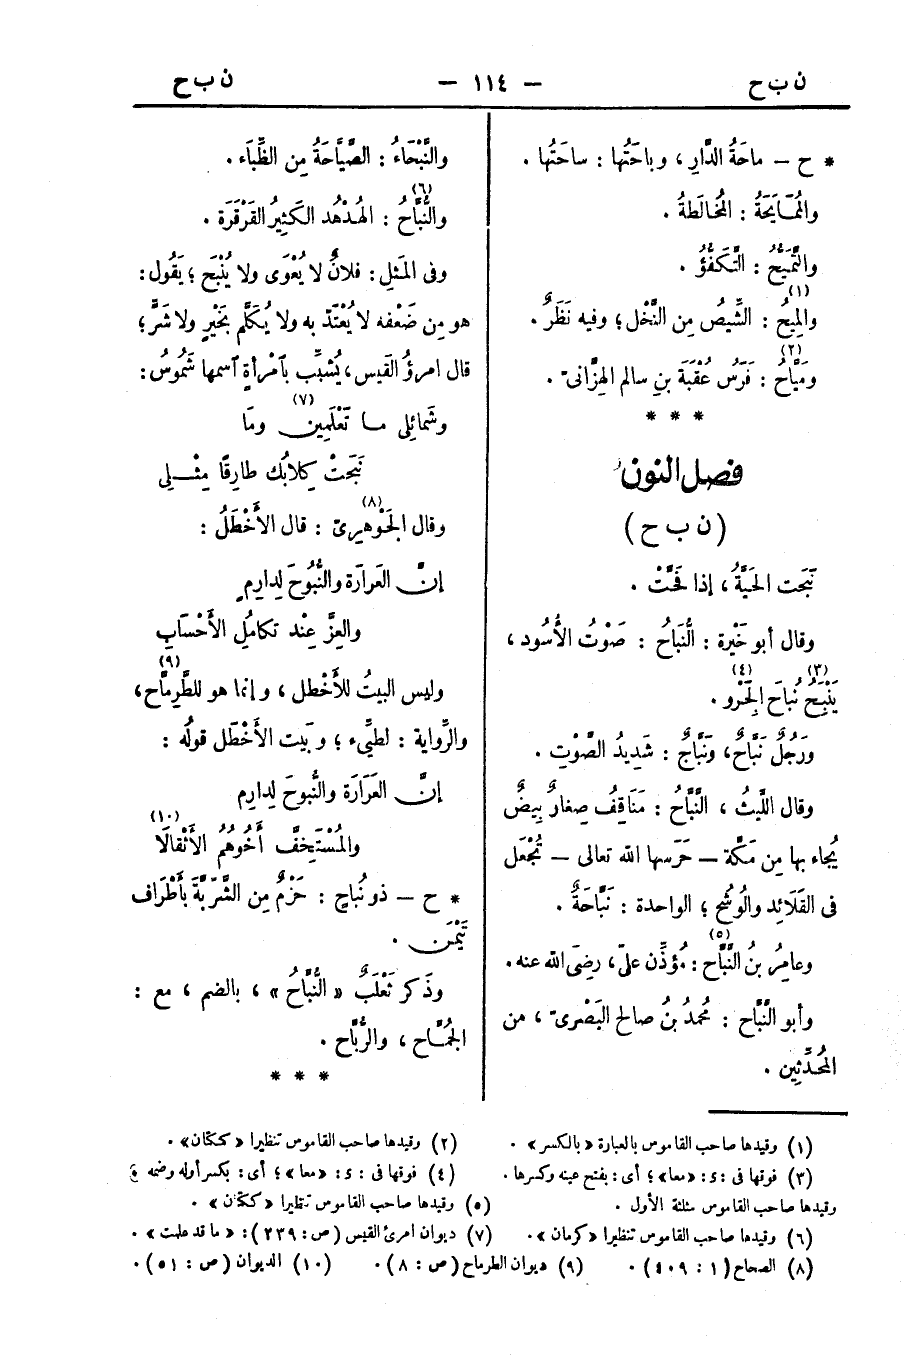 ن ب ح
— ١١٤ —
ن ب ح
* ح — ماحَةُ الدَّارِ ، وباحَتُها : ساحَتُها .
والمُمَايَحَةُ : المُخالَطةُ .
والتَّمَيُّحُ : التَّكَفُّؤُ .
والمِيحُ (١) : الشِّيصُ مِن النَّخْل ؛ وفيه نَظَرٌ .
ومَيَّاحٌ (٢) : فَرَسُ عُقْبَةَ بنِ سالم الهِزَّانىّ .
* * *
فصل النون
( ن ب ح )
نَبَحَت الحَيَّةُ ، إذا فَحَّتْ .
وقال أبو خَيْرة : النُّبَاحُ : صَوْتُ الأَسْود ،
يَنْبَِحُ (٣) نُبَاحَ الجَرْو (٤) .
ورَجُلٌ نَبَّاحٌ ، ونَبَّاجٌ : شَدِيدُ الصَّوْتِ .
وقال اللَّيثُ ، النَّبَّاحُ : مَنَاقِفُ صِغارٌ بِيضٌ
يُجاء بها مِن مَكَّة — حَرَسها الله تعالى — تُجْعَل
فى القَلَائِد والوُشُحِ ؛ الواحدة : نَبَّاحَةٌ .
وعامِرُ بنُ النَّبَّاح (٥) : مُؤذِّن علىّ ، رضِىَ الله عنه .
وأبو النَّبَّاح : مُحمدُ بنُ صالح البَصْرىّ ، من
المُحَدِّثِين .
والنَّبْحَاءُ : الصَّيَّاحَةُ مِن الظِّبَاء .
والنُّبَّاحُ (٦) : الهُدْهُد الكَثِيرُ القَرْقَرَة .
وفى المَثل : فلانٌ لا يُعْوَى ولا يُنْبَح ؛ يَقُول :
هو مِن ضَعْفه لا يُعْتَدّ به ولا يُكلَّم بخَيْرٍ ولا شَرٍّ ؛
قال امرؤُ القَيس ، يُشبِّب بآمْرأةٍ آسمها شَمُوسُ :
وشَمائِلى مــا تَعْلَمِين (٧) ومَا
نَبَحَتْ كِلابُك طارِقًا مِثْــلِى
وقال الجَوْهرىّ (٨) : قال الأَخْطَلُ :
إنَّ العَرارَة والنُّبُوحَ لِدارِمٍ
والعِزَّ عِنْد تكامُلِ الأَحْسَابِ
وليس البيتُ للأَخْطل ، وإنما هو للطِّرِمَّاح (٩) ،
والرِّواية : لطيِّىء ؛ وبَيت الأَخْطَل قولُه :
إنَّ العَرَارَة والنُّبوحَ لِدارِم
والمُسْتَخِفّ أَخُوهُمُ الأَثْقالَا (١٠)
* ح — ذو نُباحٍ : حَزْمٌ مِن الشَّرَبَّة بأَطْرَاف
تَيْمَن .
وذَكر ثَعْلَبٌ « النُّبَّاحُ » ، بالضم ، مع :
الجُمَّاح ، والرُّبَّاح .
* * *
(١) وقيدها صاحب القاموس بالعبارة « بالكسر » .
(٢) وقيدها صاحب القاموس تنظيرا « ككتان » .
(٣) فوقها فى : s : « معا » ؛ أى : بفتح عينه وكسرها .
(٤) فوقها فى : s : « معا » ؛ أى : بكسر أوله وضمه ؛
وقيدها صاحب القاموس مثلثة الأول .
(٥) وقيدها صاحب القاموس تنظيرا « ككتان » .
(٦) وقيدها صاحب القاموس تنظيرا « كرمان » .
(٧) ديوان امرئ القيس ( ص : ٢٣٩ ) : « ما قد علمت » .
(٨) الصحاح ( ١ : ٤٠٩ ) .
(٩) ديوان الطرماح ( ص : ٨ ) .
(١٠) الديوان ( ص : ٥١ ) .